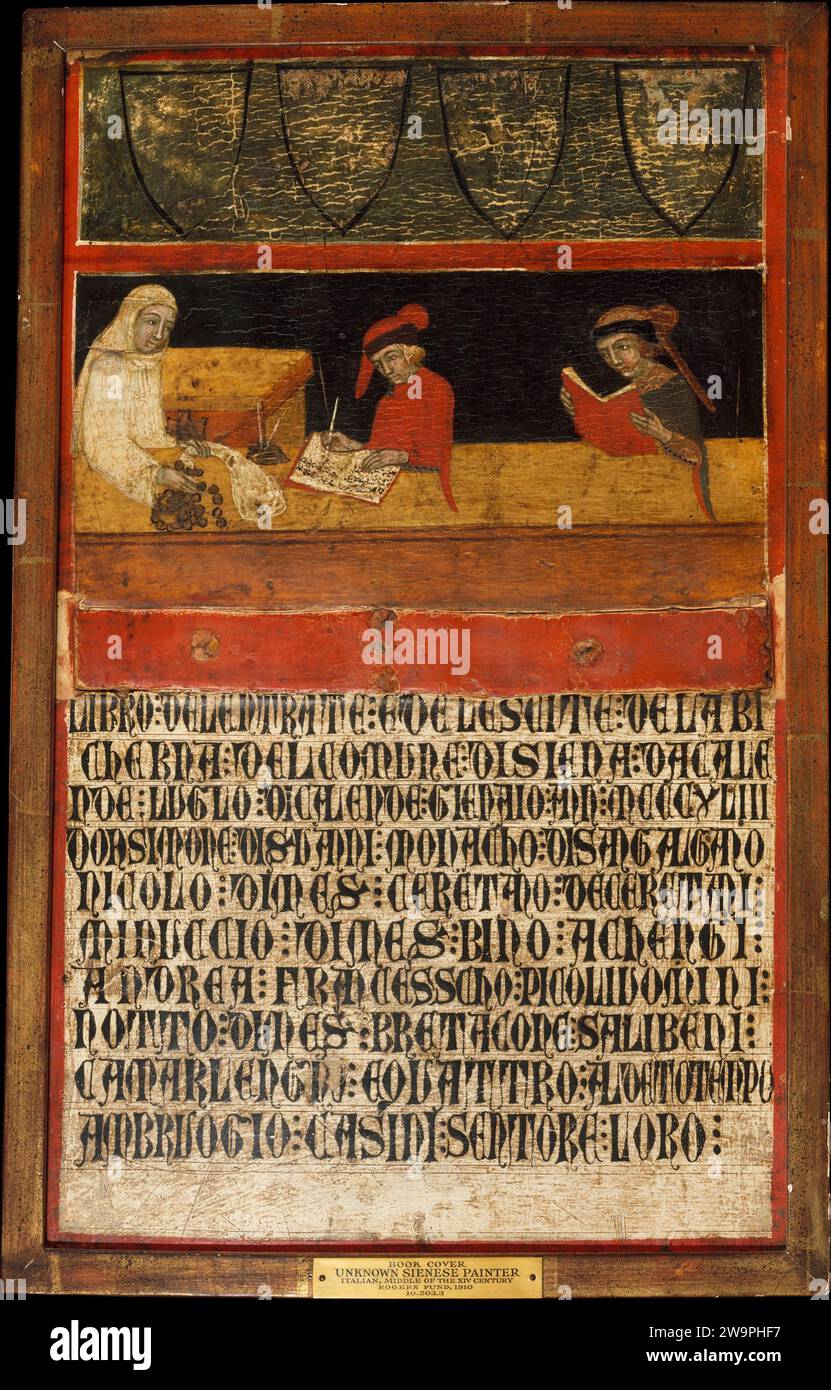 LIBRO : DELENTRATE : EDELESCITE : DELABI
CHERNA : DELCOMUNE : DISIENA : DACALE
NDE : LUGLO : DICALENDE : GIENAIO : ANN : MCCCXLIII
DONSIMONE : MONACHO : DISANGALGANO
NICOLO : DIMES : CERETANO : DECERETANI :
MINUCCIO : DIMES : BINO : ACHENGI :
ANDREA : FRANCESSCHO : PICOLIUOMINI :
NOTTO : DIMES : BRETACONE : SALIBENI :
EQUATTRO : ALDETOTENPO
AMBRUOGIO : CASINI : LORO :
BOOK COVER
UNKNOWN SIENESE PAINTER
ITALIAN, MIDDLE OF THE XIV CENTURY
ROGERS FUND, 1910
10.203.3
alamy
Image ID: 2W9PHF7
www.alamy.com